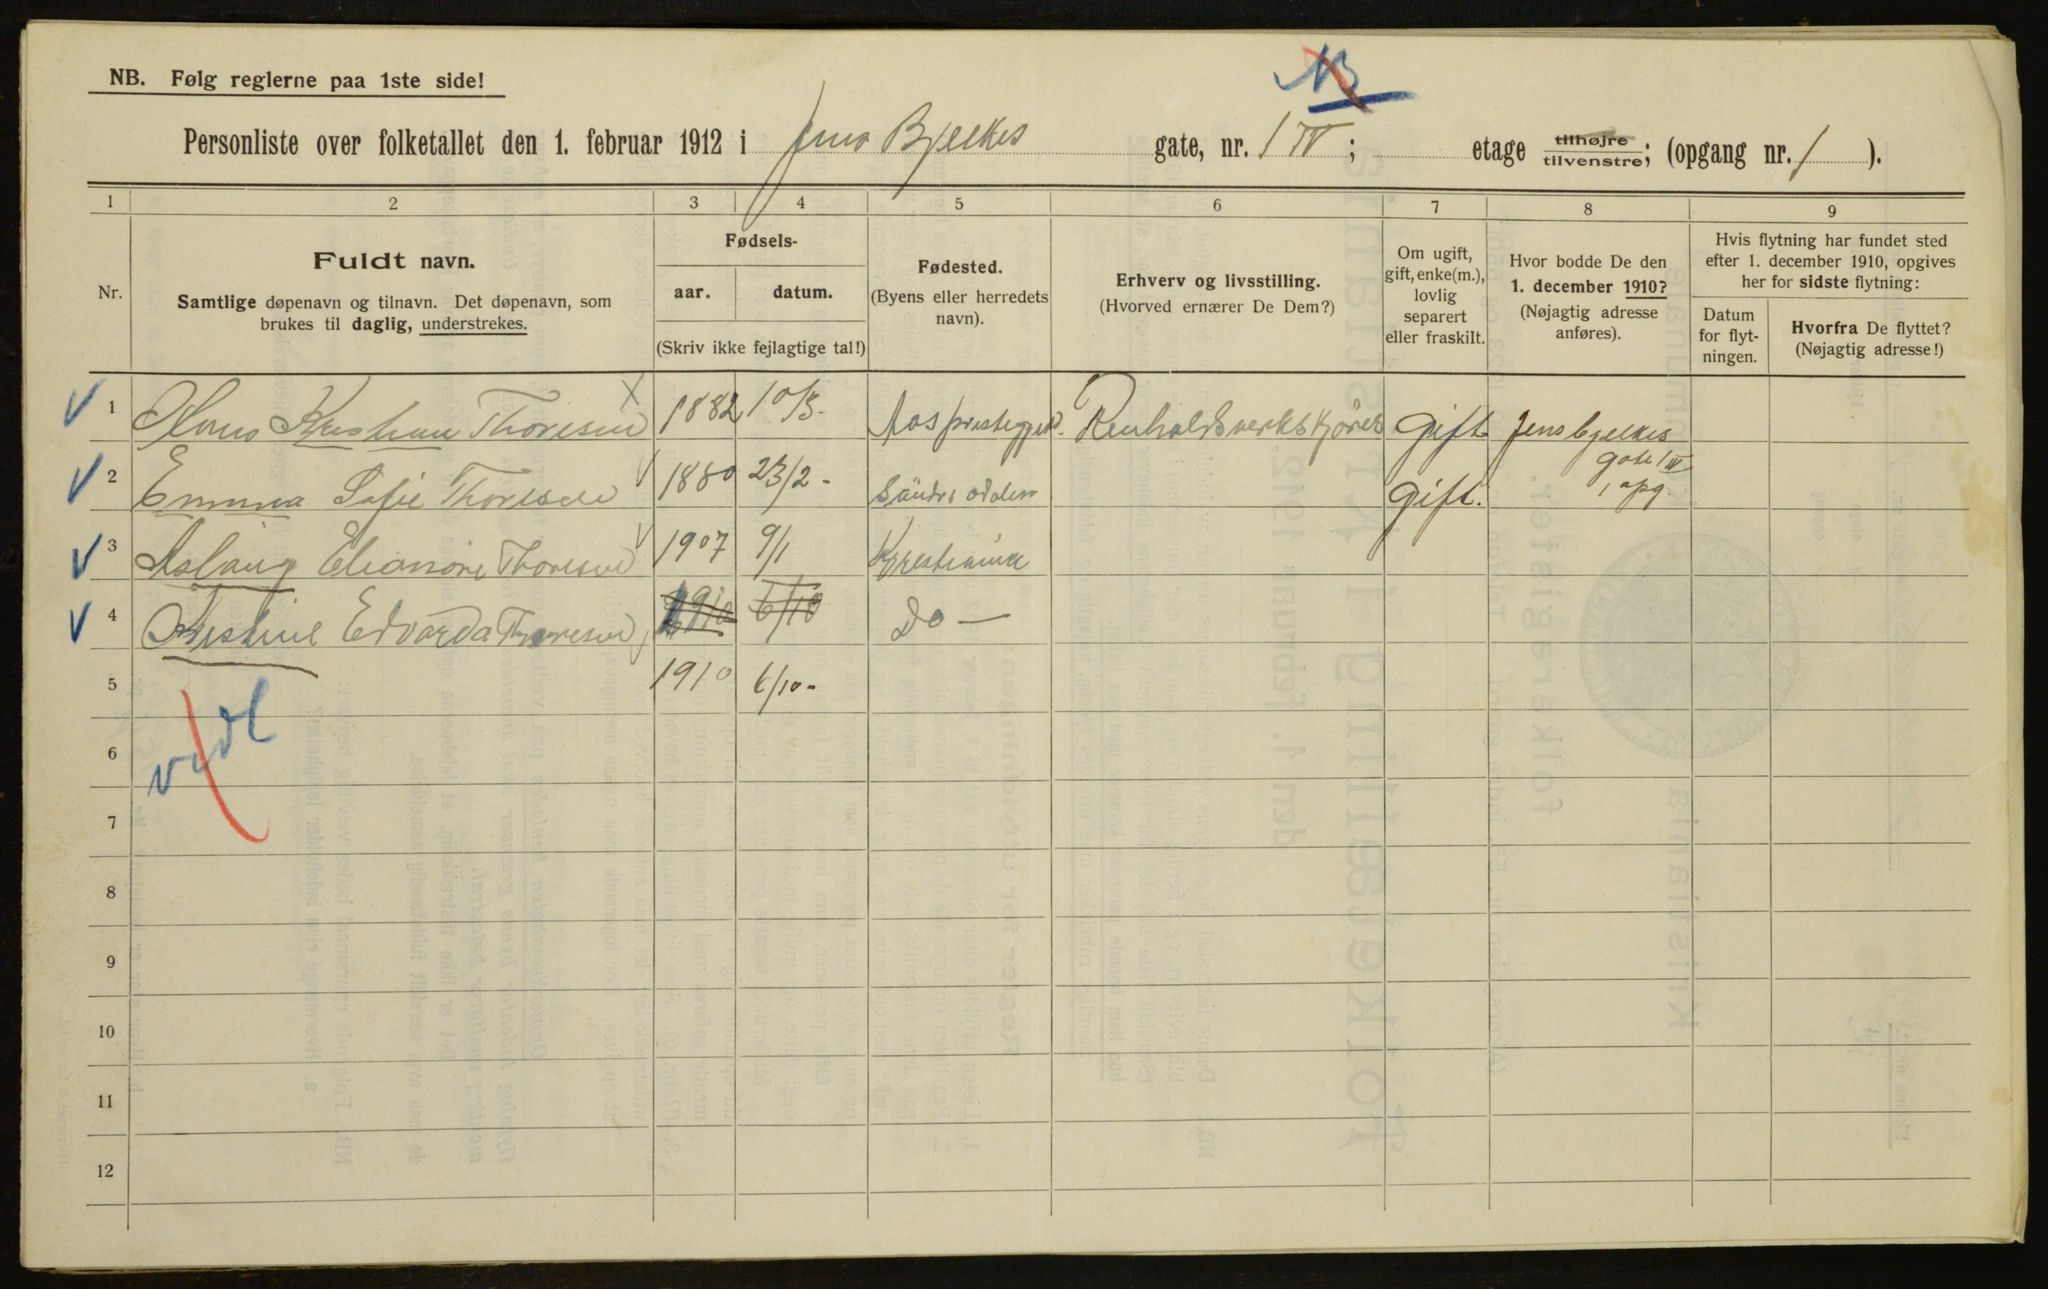 NB. Følg reglerne paa 1ste side!
NB
Personliste over folketallet den 1. februar 1912 i Jens Bjelkes gate, nr. 1 IV; etage tilhøjre tilvenstre; (opgang nr. 1).
1 2 3 4 5 6 7 8 9
Nr.
Fuldt navn.
Samtlige døpenavn og tilnavn. Det døpenavn, som
brukes til daglig, understrekes.
Fødsels-
aar. datum.
(Skriv ikke fejlagtige tal!)
Fødested.
(Byens eller herredets
navn).
Erhverv og livsstilling.
(Hvorved ernærer De Dem?)
Om ugift,
gift, enke(m.),
lovlig
separert
eller fraskilt.
Hvor bodde De den
1. december 1910?
(Nøjagtig adresse
anføres).
Hvis flytning har fundet sted
efter 1. december 1910, opgives
her for sidste flytning:
Datum
for flyt-
ningen.
Hvorfra De flyttet?
(Nøjagtig adresse!)
1 Hans Kristian Thoresen 1882 10/3. Aas prestegjeld. Renholdsverkskjører Gift Jens bjelkes
gate 1 IV
2 Emma Sofie Thoresen 1880 23/2 - Gift. 1 opg.
3 Aslaug Eleanore Thoresen 1907 9/1 Kristiania
4 Kristine Edvarda Thoresen 1910 6/10 Do —
5 1910 6/10 -
6
7
8
9
10
11
12